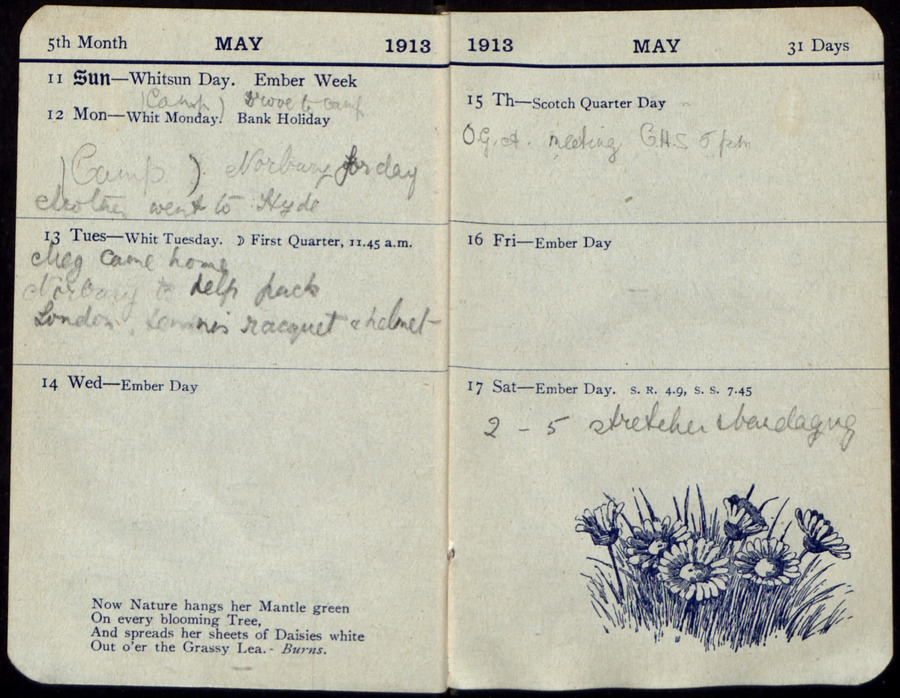 5th Month MAY 1913
11 Sun—Whitsun Day. Ember Week
(Camp) Drove to camp
12 Mon—Whit Monday. Bank Holiday
(Camp). Norbury for day
Mother went to Hyde
13 Tues—Whit Tuesday. ☽ First Quarter, 11.45 a.m.
Meg came home
Norbury to help pack
London, tennis racquet & helmet
14 Wed—Ember Day
Now Nature hangs her Mantle green
On every blooming Tree,
And spreads her sheets of Daisies white
Out o'er the Grassy Lea. - Burns.
1913 MAY 31 Days
15 Th—Scotch Quarter Day
O.G.A. meeting G.H.S 5 pm
16 Fri—Ember Day
17 Sat—Ember Day. S. R. 4.9, S. S. 7.45
2 - 5 stretcher & bandaging